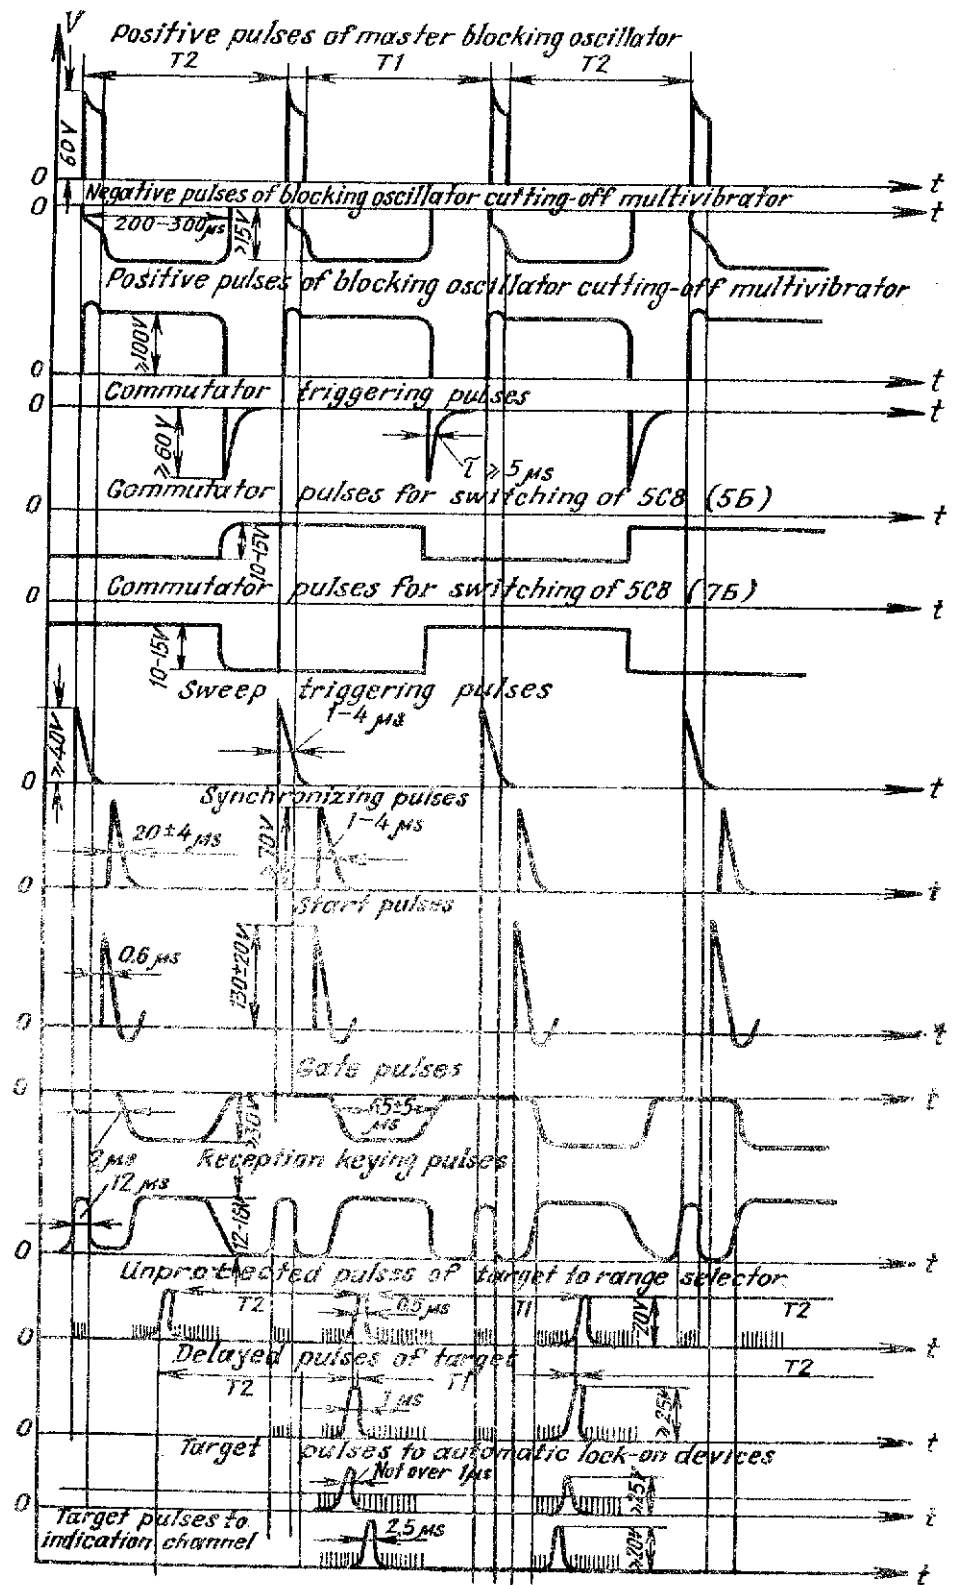 V
Positive pulses of master blocking oscillator
T2 T1 T2
60V
0 t
Negative pulses of blocking oscillator cutting-off multivibrator
0 t
200-300μs
>15V
Positive pulses of blocking oscillator cutting-off multivibrator
≥100V
0 t
Commutator triggering pulses
0 t
≥60V
τ ≥ 5 μs
Commutator pulses for switching of 5C8 (5Б)
0 t
10-15V
Commutator pulses for switching of 5C8 (7Б)
0 t
10-15V
Sweep triggering pulses
≥40V
1-4 μs
0 t
Synchronizing pulses
20±4 μs
≥70V
1-4 μs
0 t
Start pulses
0.6 μs
130±20V
0 t
Gate pulses
0 t
≥30V
65±5 μs
2 μs
Reception keying pulses
12 μs
12-18V
0 t
Unprotected pulses of target to range selector
T2 0.5 μs T1 T2
20V
0 t
Delayed pulses of target
T2 T1 T2
1 μs
≥25V
0 t
Target pulses to automatic lock-on devices
Not over 1μs
≥25V
0 t
Target pulses to indication channel
2.5 μs
≥20V
t